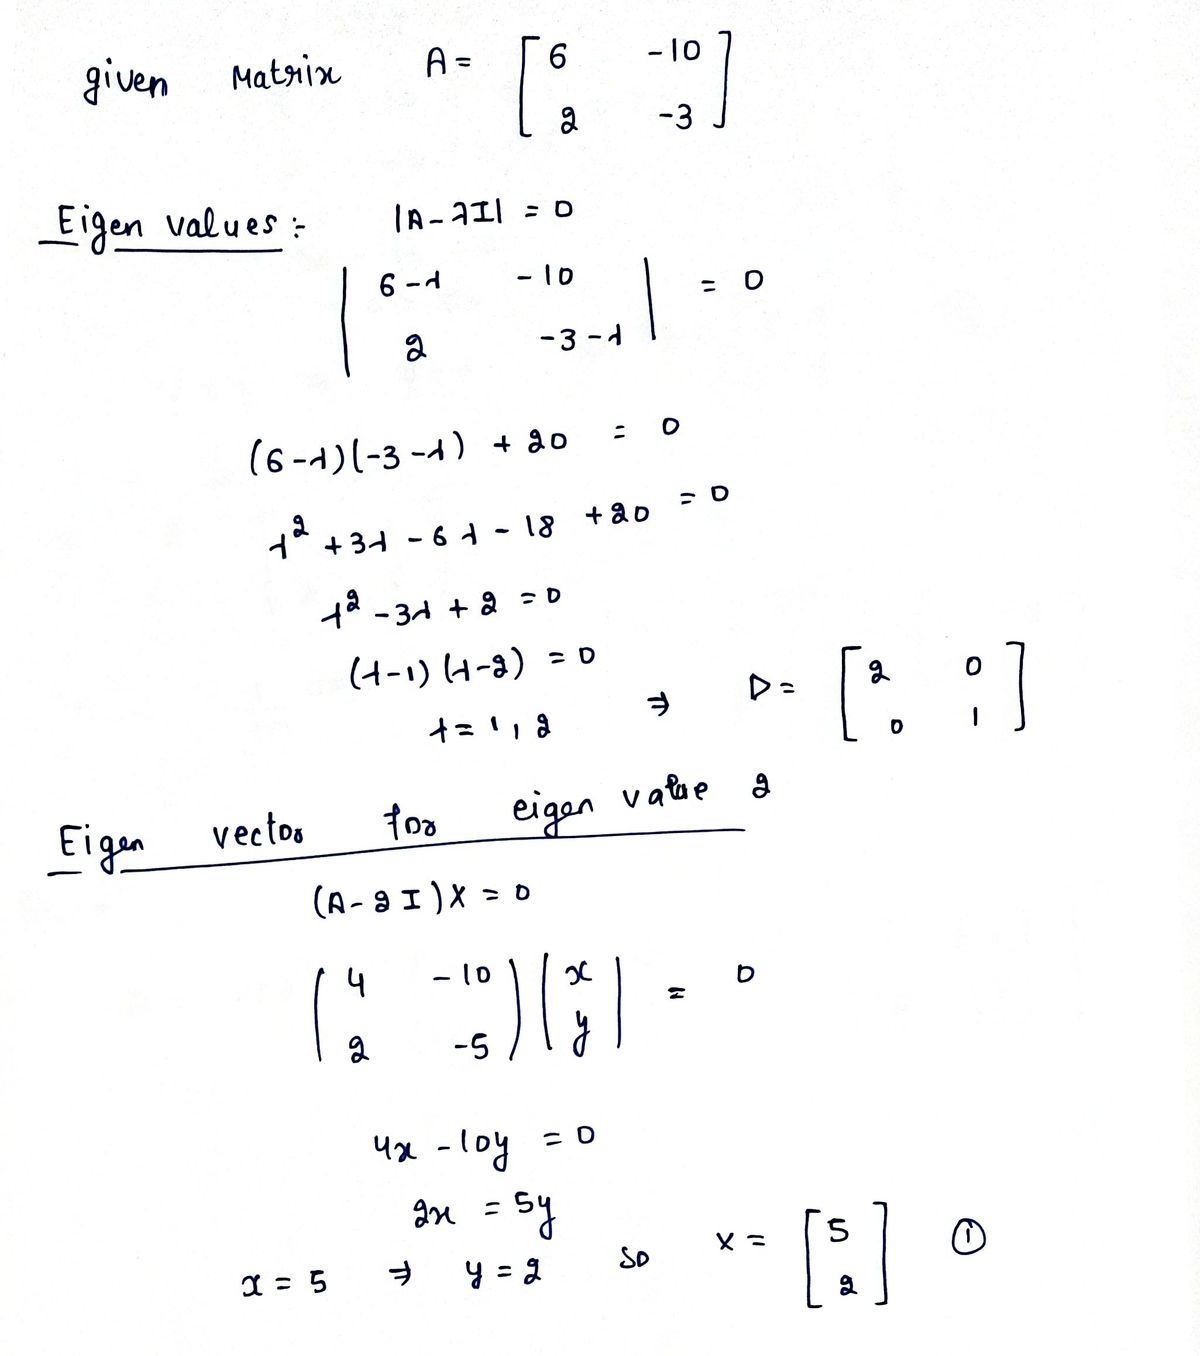 given Matrix A = [ 6 -10
2 -3 ]
Eigen values :- |A - λI| = 0
| 6-λ -10 | = 0
| 2 -3-λ |
(6-λ)(-3-λ) + 20 = 0
λ² + 3λ - 6λ - 18 + 20 = 0
λ² - 3λ + 2 = 0
(λ-1)(λ-2) = 0
λ = 1, 2 ⇒ D = [ 2 0
0 1 ]
Eigen vector for eigen value 2
(A - 2I)X = 0
( 4 -10 ) | x | = 0
( 2 -5 ) | y |
4x - 10y = 0
2x = 5y
x = 5 ⇒ y = 2 so X = [ 5 ①
2 ]